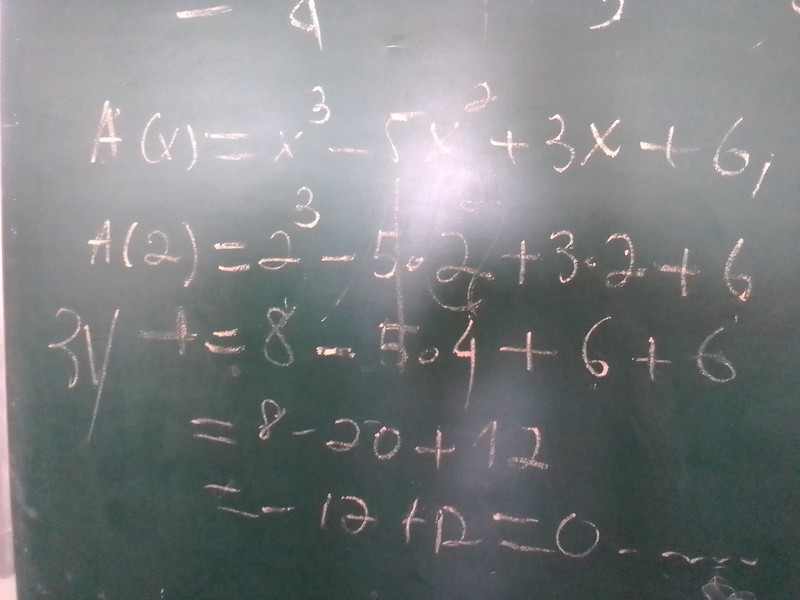 - 4
A(x) = x³ - 5x² + 3x + 6,
A(2) = 2³ - 5·2 + 3·2 + 6
3y + = 8 - 5·4 + 6 + 6
= 8 - 20 + 12
= - 12 + 12 = 0